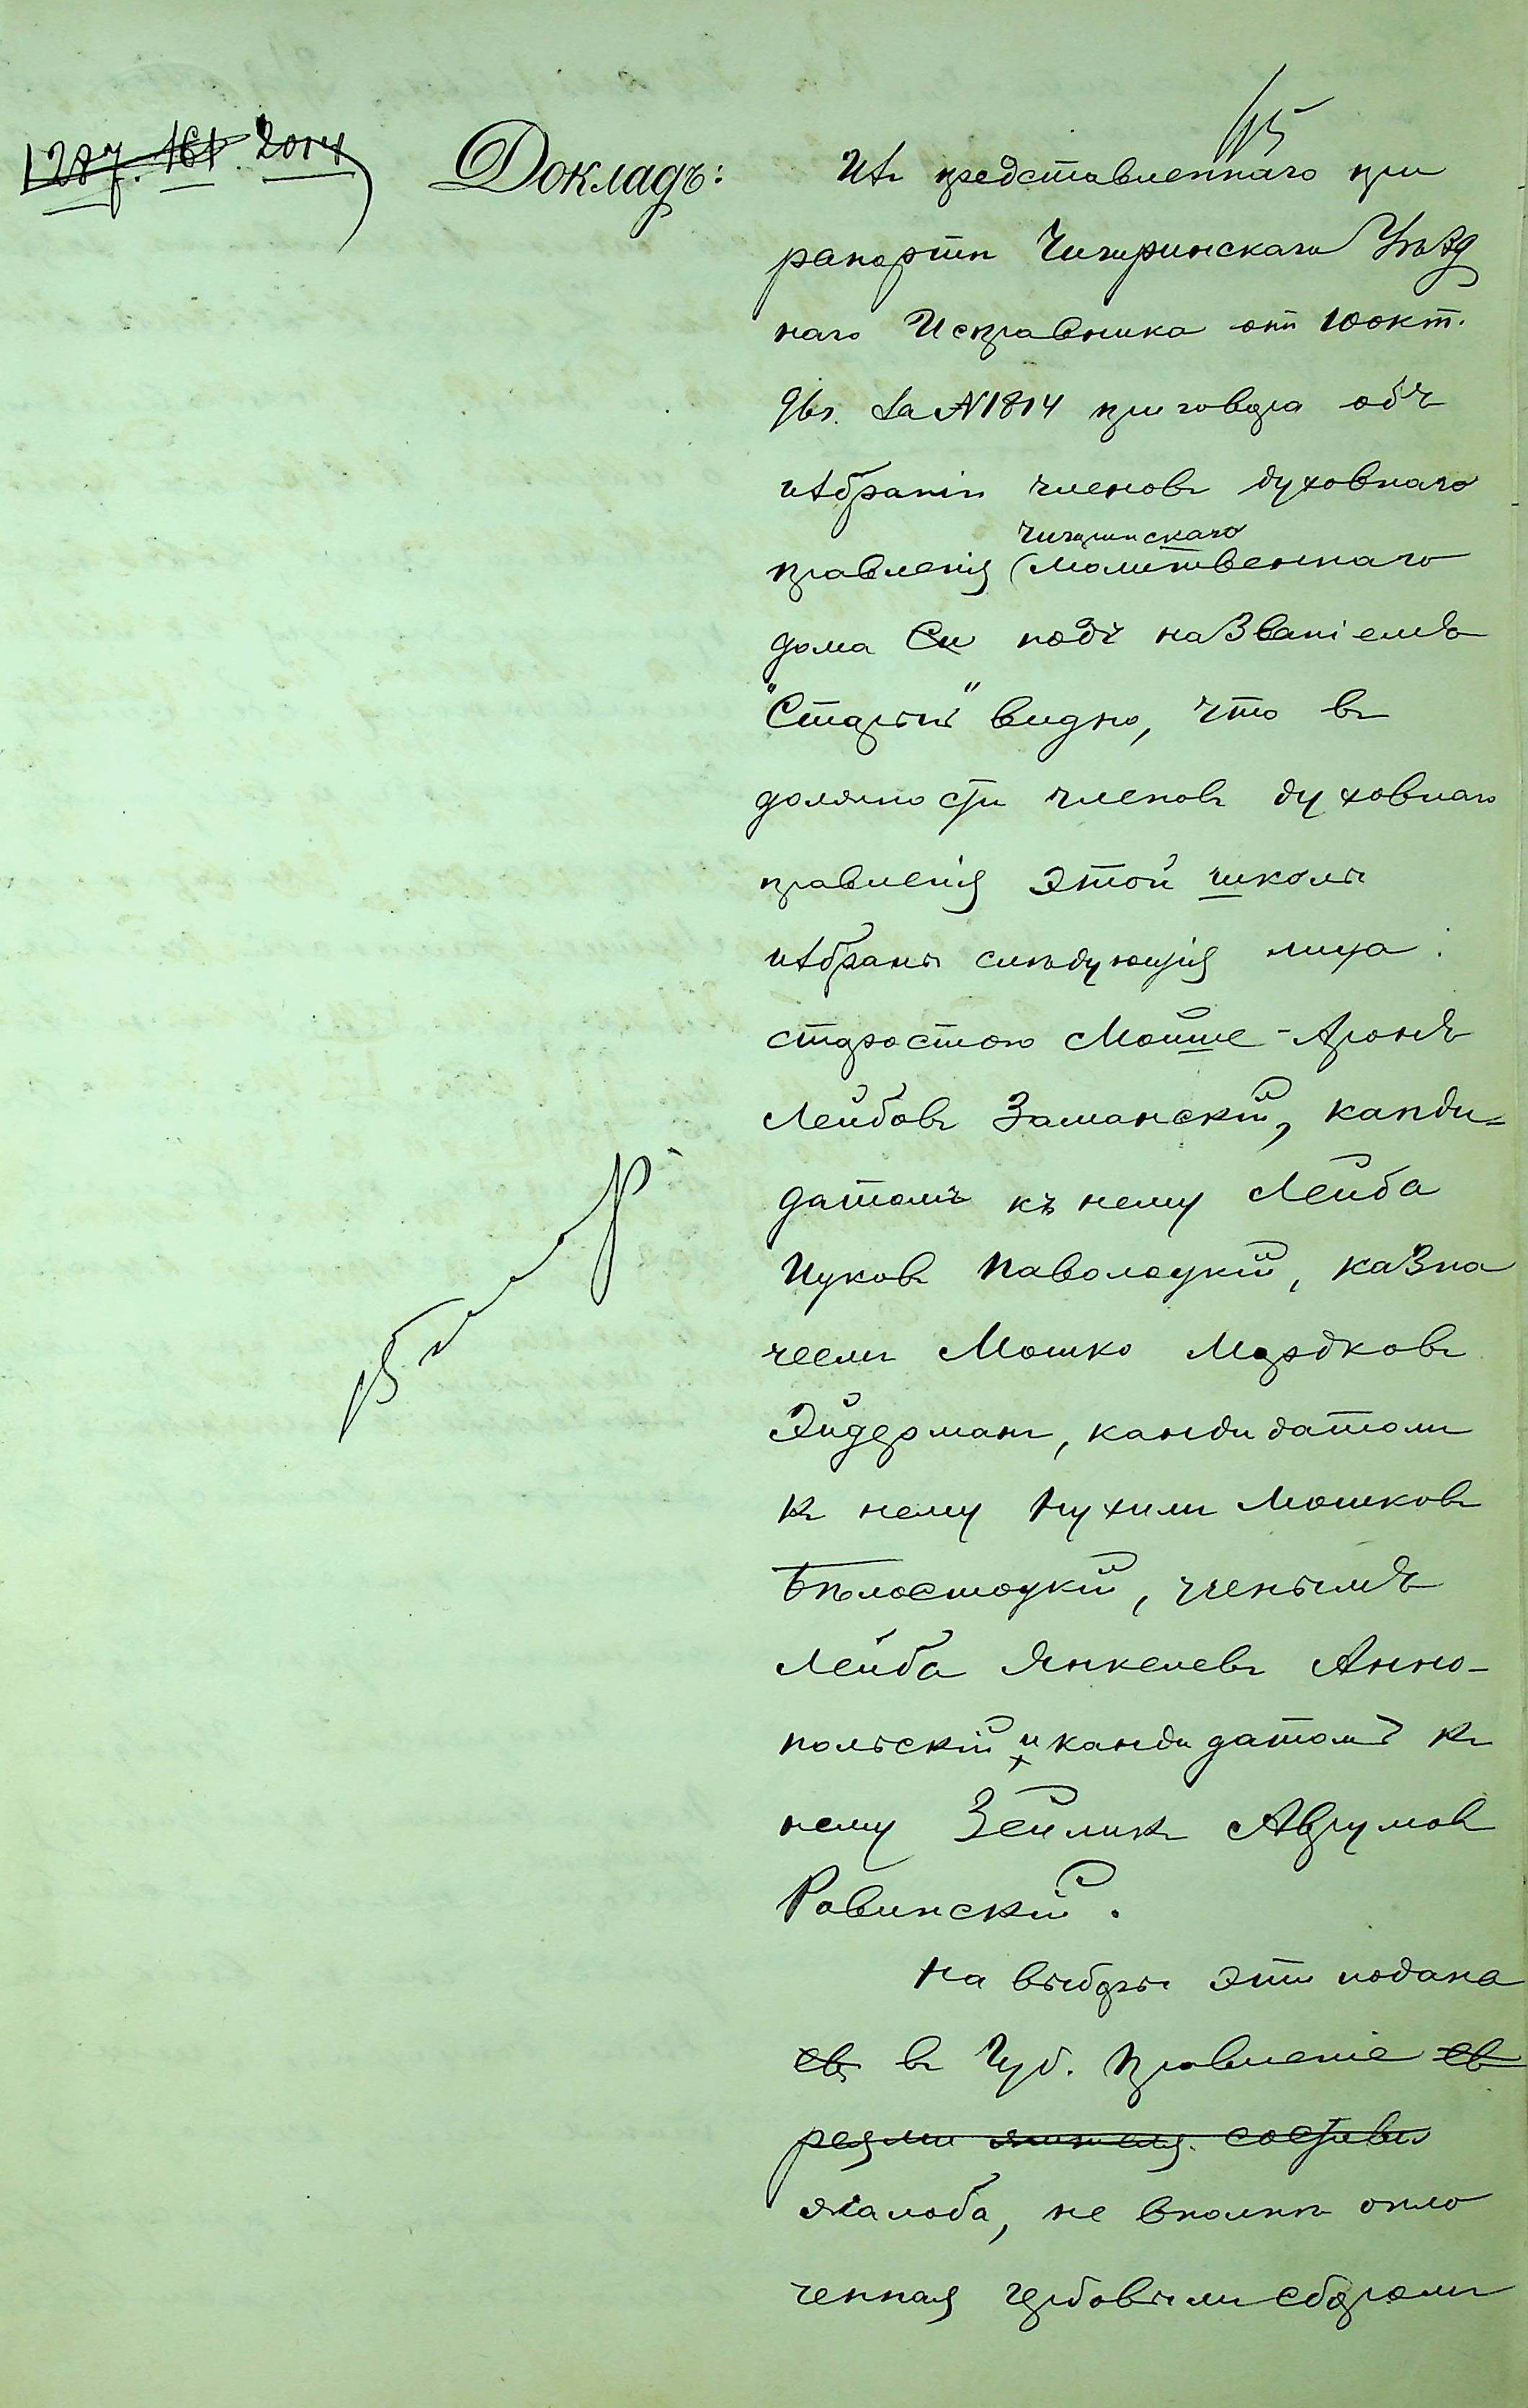 1287. 161. 2014
Докладъ:
Изъ представленнаго при
рапортѣ Чигиринскаго Уѣзд
наго Исправника отъ 10 окт.
96 г. за № 1814 приговора объ
избраніи членовъ духовнаго
чигиринскаго
правленія молитвеннаго
дома Си подъ названіемъ
"Старый" видно, что въ
должности членовъ духовнаго
правленія этой школы
избраны слѣдующія лица:
старостою Мойше-Аронъ
Лейбовъ Заманскій, канди-
датомъ къ нему Лейба
Ицковъ Паволоцкій, казна
чеемъ Мошко Мордковъ
Эйдерманъ, кандидатомъ
къ нему Нухимъ Мошковъ
Бѣлостоцкій, ученымъ
Лейба Янкелевъ Анно-
польскій и кандидатомъ къ
нему Зейликъ Аврумовъ
Ровинскій.
На выборы эти подана
ев въ Губ. Правленіе ев
реями жителя. составъ
жалоба, не вполнѣ опло
ченная гербовымъ сборомъ